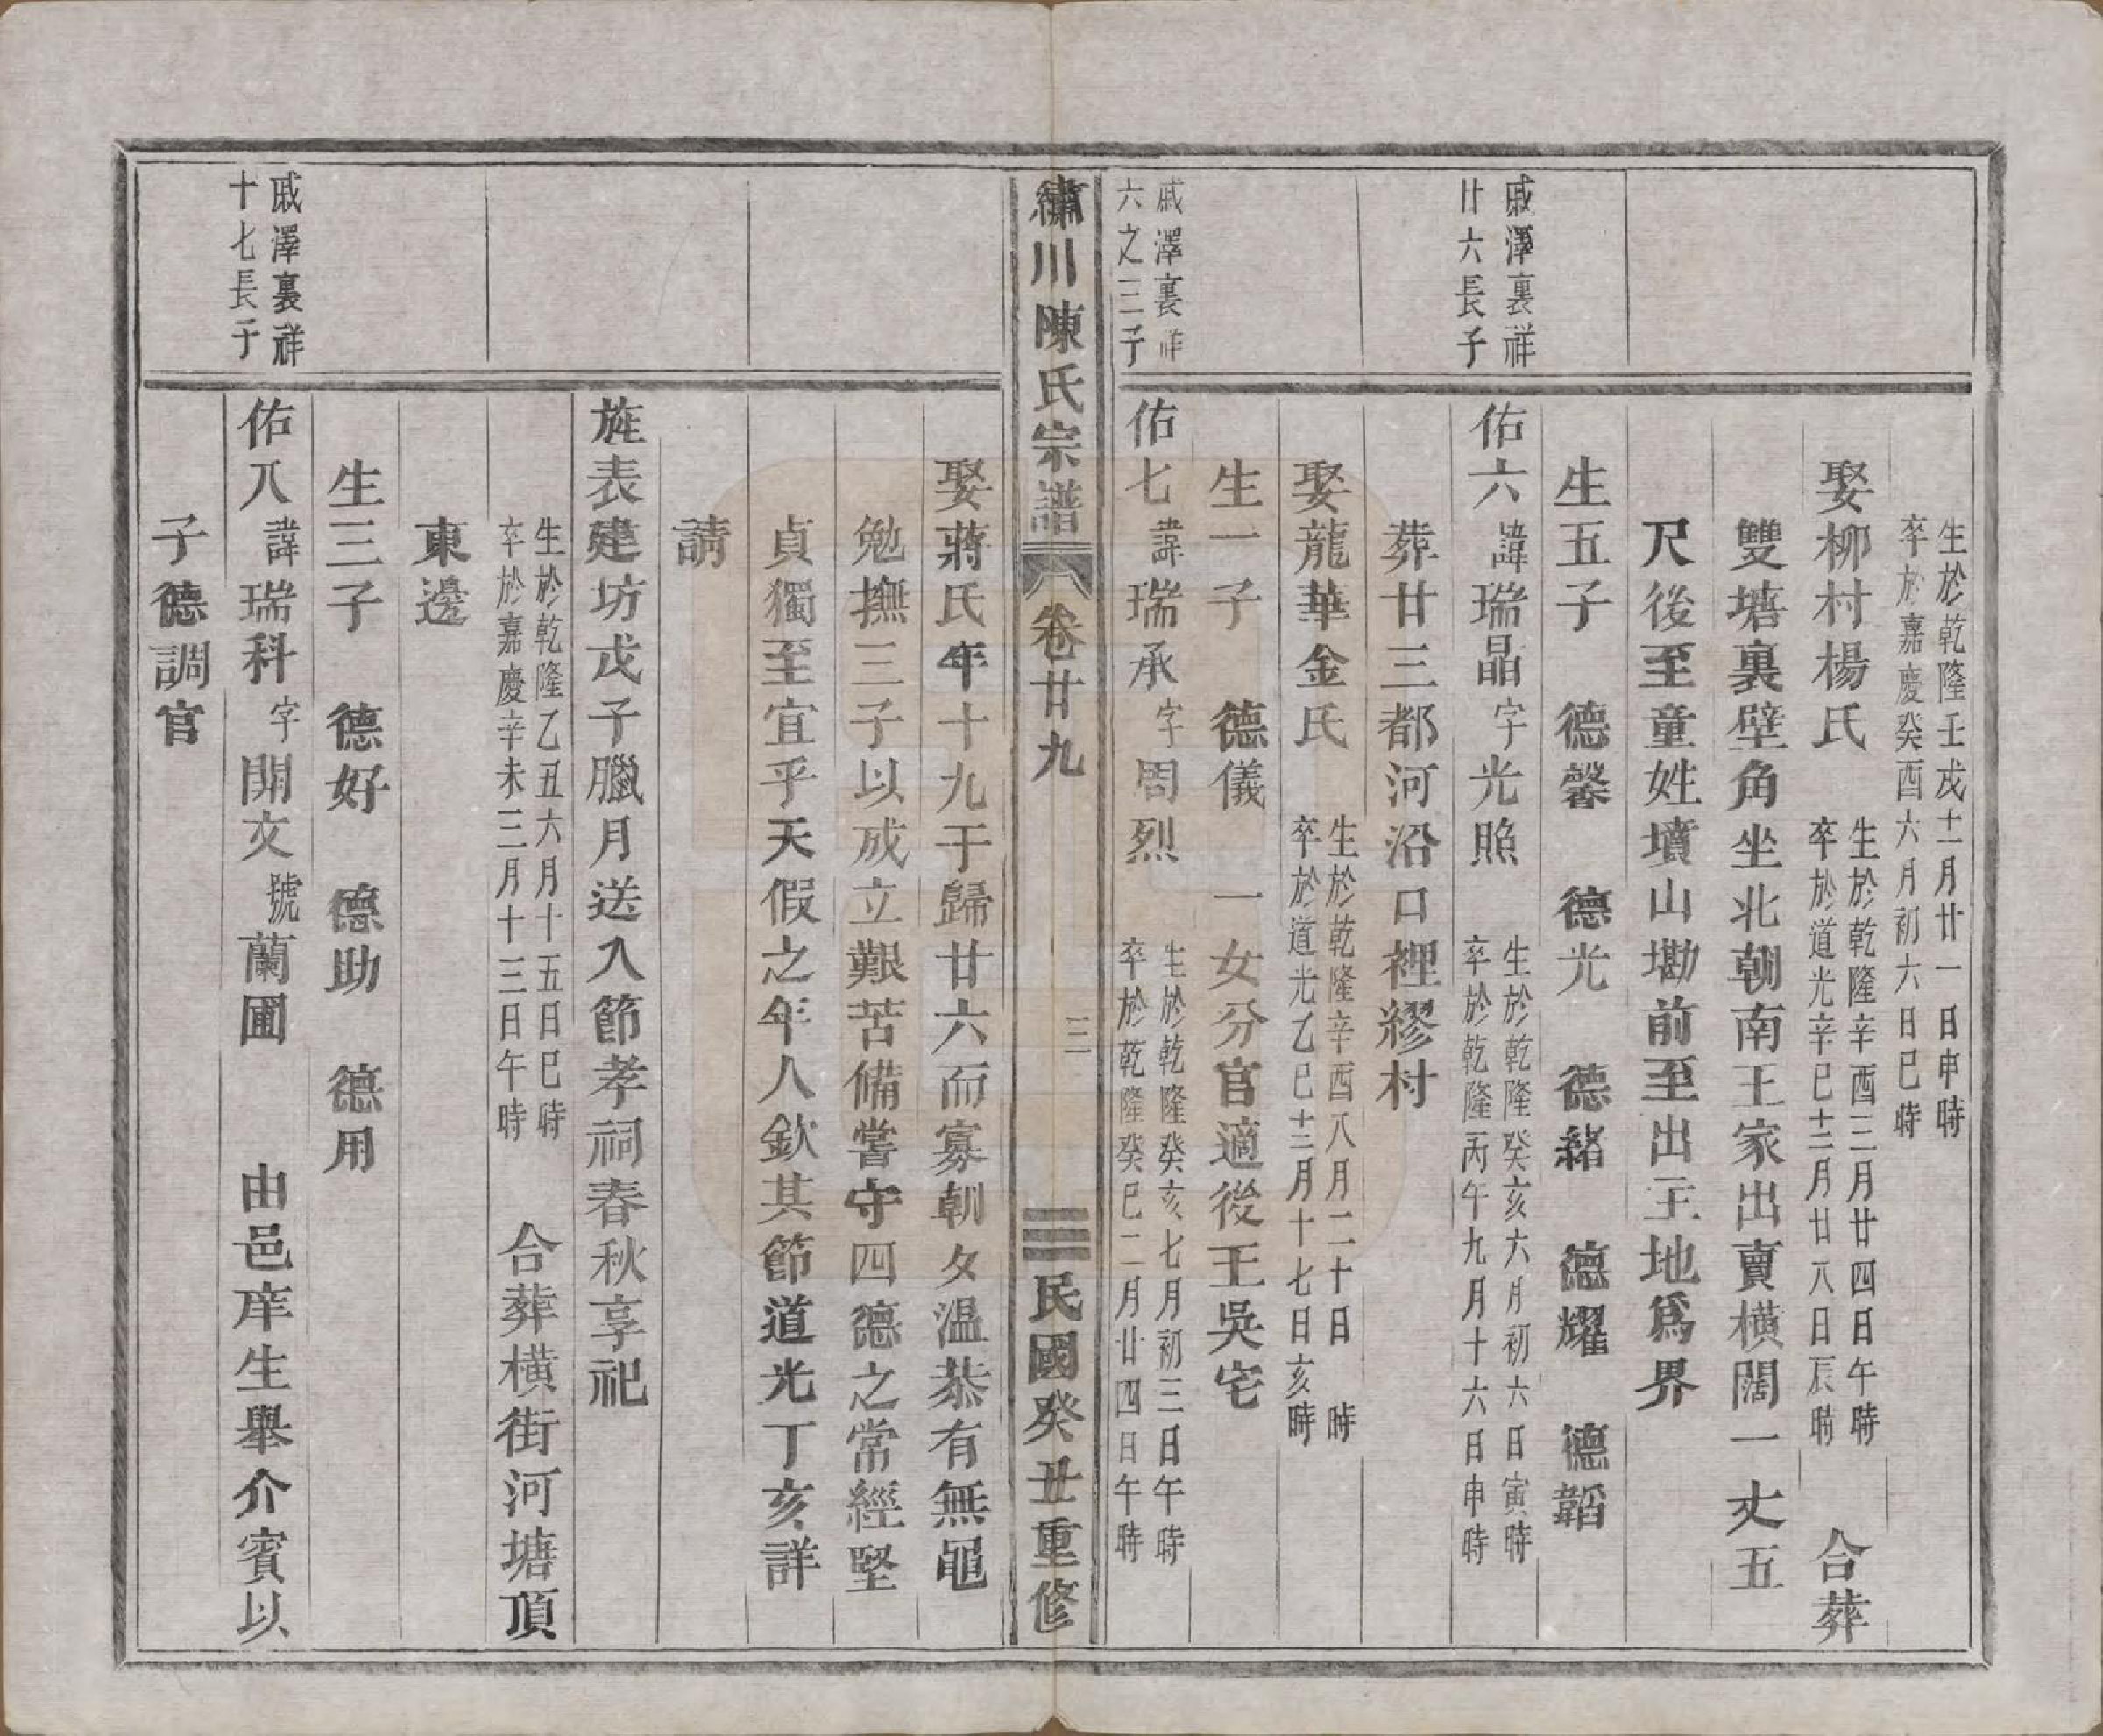 生於乾隆壬戌十一月廿一日申時
卒於嘉慶癸酉六月初六日巳時
娶柳村楊氏 生於乾隆辛酉三月廿四日午時 卒於道光辛巳十二月廿八日辰時 合葬
雙塘裏壁角坐北朝南王家出賣橫闊一丈五
尺後至童姓墳山墈前至出主地爲界
生五子 德馨 德光 德緒 德耀 德韜
戚澤裏祥廿六長子
佑六諱瑞晶字光照 生於乾隆癸亥六月初六日寅時 卒於乾隆丙午九月十六日申時
葬廿三都河沿口裡繆村
娶龍華金氏 生於乾隆辛酉八月二十日 時 卒於道光乙巳十二月十七日亥時
生一子 德儀 一女分官適後王吳宅
戚澤裏祥六之三子
佑七諱瑞承字周烈 生於乾隆癸亥七月初三日午時 卒於乾隆癸巳二月廿四日午時
繡川陳氏宗譜 卷廿九 三 民國癸丑重修
娶蔣氏年十九于歸廿六而寡朝夕溫恭有無黽
勉撫三子以成立艱苦備嘗守四德之常經堅
貞獨至宜乎天假之年人欽其節道光丁亥詳
請
旌表建坊戊子臘月送入節孝祠春秋享祀
生於乾隆乙丑六月十五日巳時 卒於嘉慶辛未三月十三日午時 合葬橫街河塘頂
東邊
生三子 德好 德助 德用
戚澤裏祥十七長子
佑八諱瑞科字開文號蘭圃 由邑庠生舉介賓以
子德調官